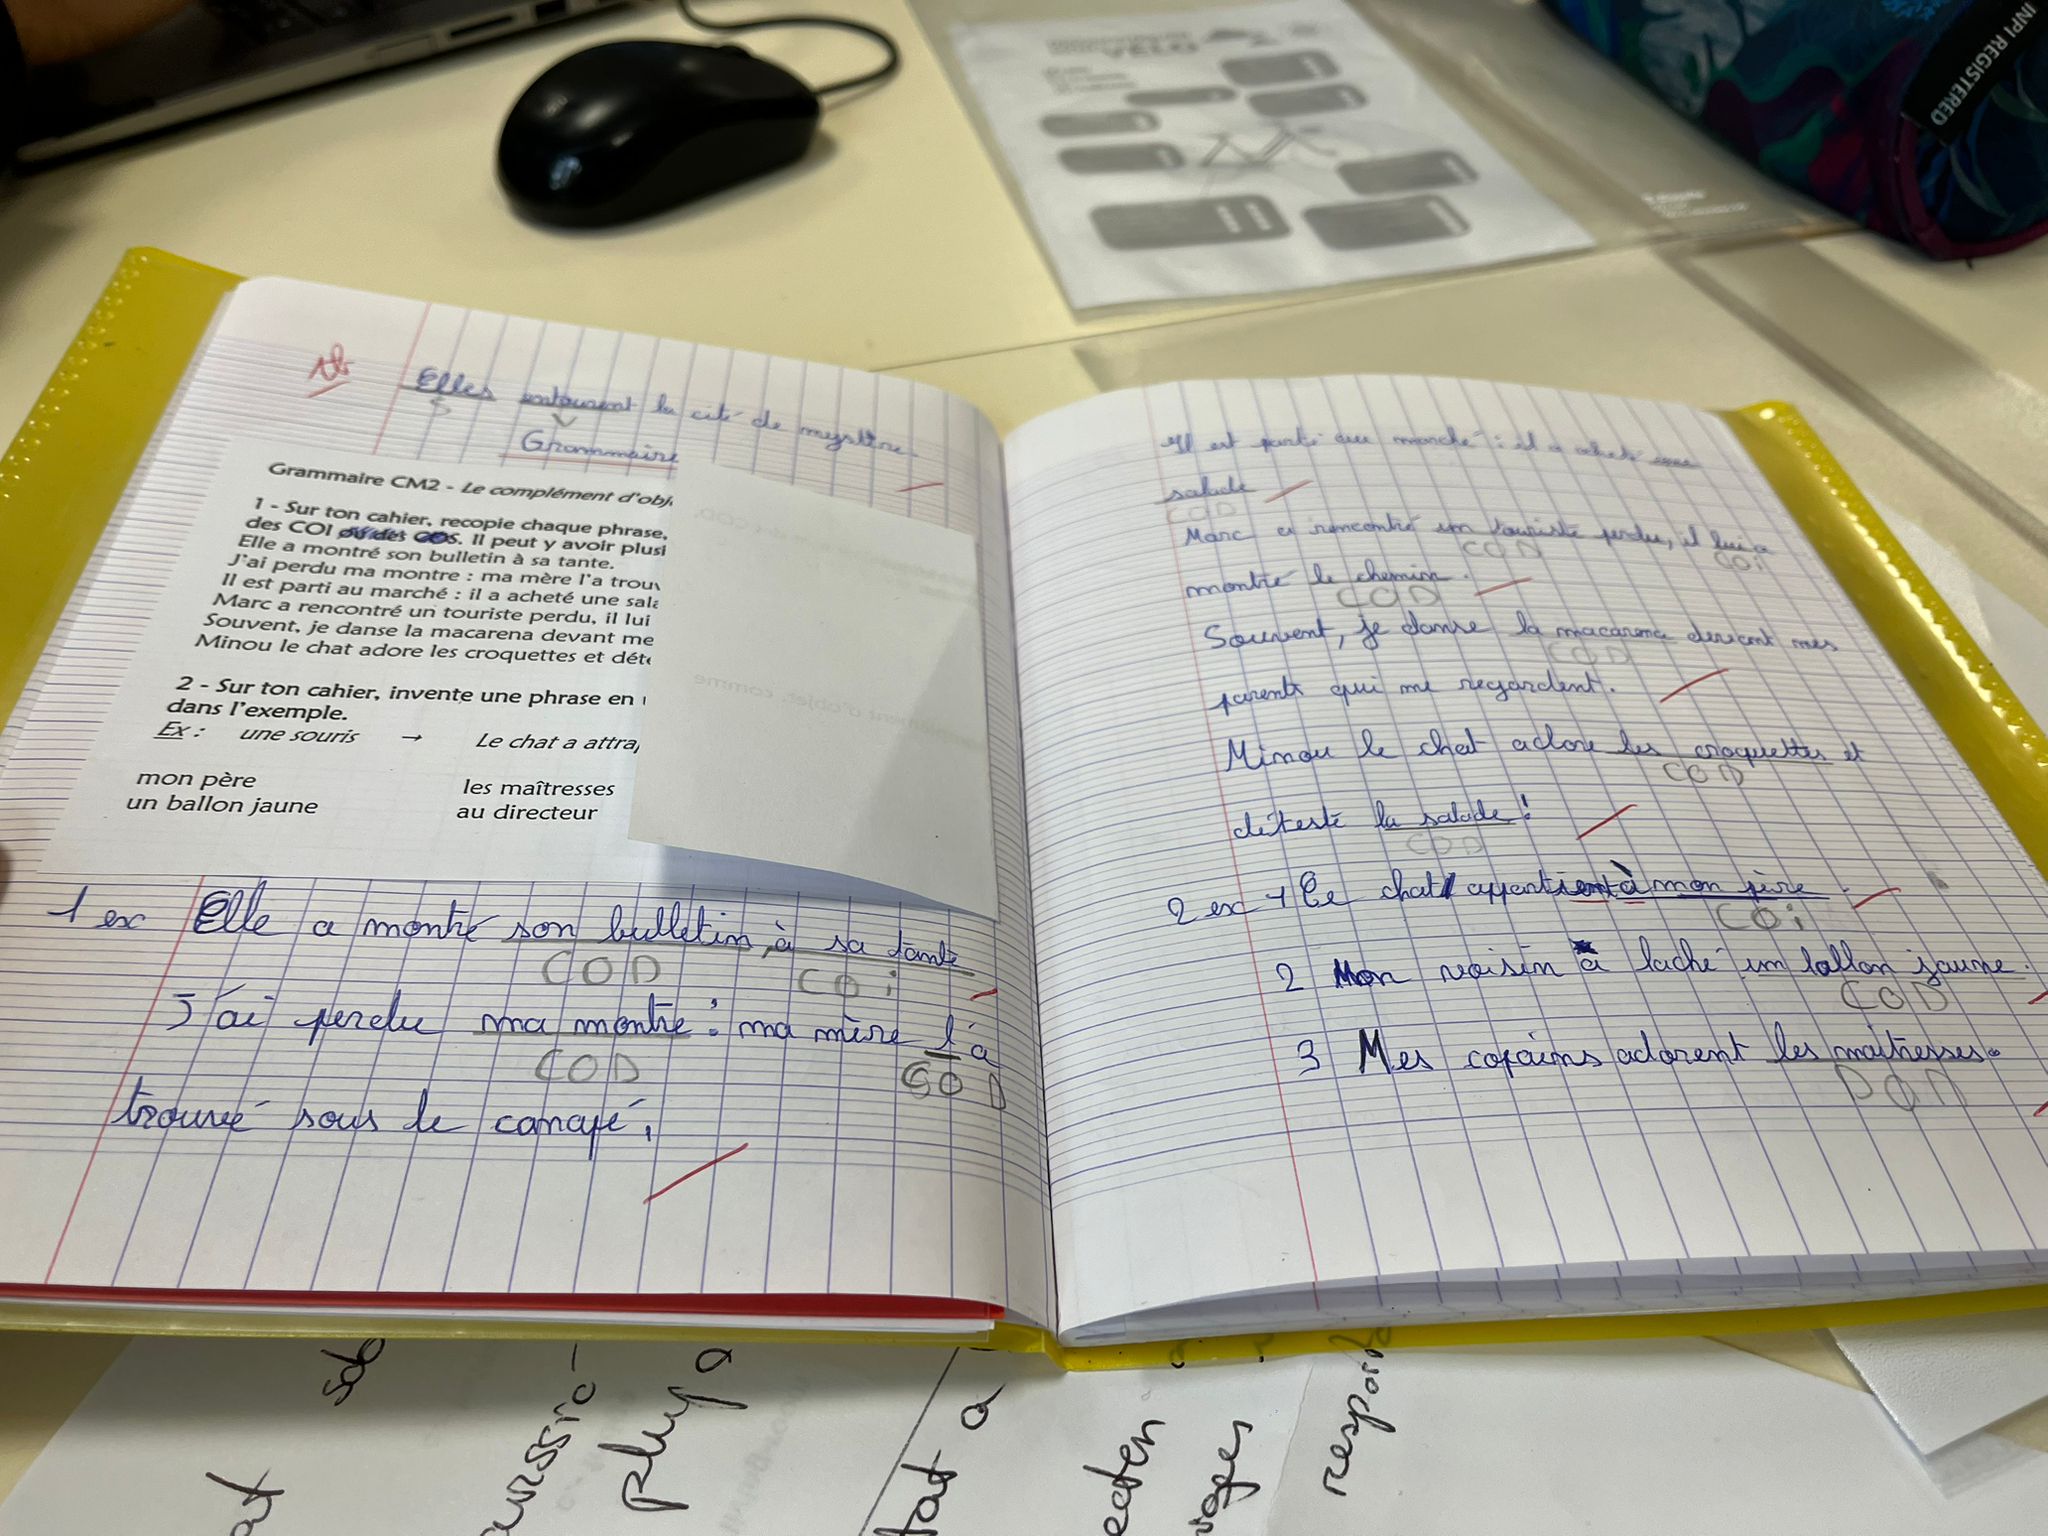 INPI REGISTERED
VELO
tb
Elles entourent la cité de mystère.
S V
Grammaire
Grammaire CM2 - Le complément d'obj
1 - Sur ton cahier, recopie chaque phrase,
des COI ou des COS. Il peut y avoir plusi
Elle a montré son bulletin à sa tante.
J'ai perdu ma montre : ma mère l'a trouv
Il est parti au marché : il a acheté une sala
Marc a rencontré un touriste perdu, il lui
Souvent, je danse la macarena devant me
Minou le chat adore les croquettes et déte
2 - Sur ton cahier, invente une phrase en
dans l'exemple.
Ex : une souris → Le chat a attra
mon père les maîtresses
un ballon jaune au directeur
1 ex Elle a montré son bulletin, à sa tante
COD COi
J'ai perdu ma montre : ma mère l'a
COD COD
trouvé sous le canapé.
Il est parti au marché : il a acheté une
salade
COD
Marc a rencontré un touriste perdu, il lui a
COD COi
montré le chemin.
COD
Souvent, je danse la macarena devant mes
COD
parents qui me regardent.
Minou le chat adore les croquettes et
COD
déteste la salade !
COD
2 ex 1 Ce chat appartient à mon père.
COi
2 Mon voisin a laché un ballon jaune.
COD
3 Mes copains adorent les maîtresses.
DOD
at
plug a
tat a
vages